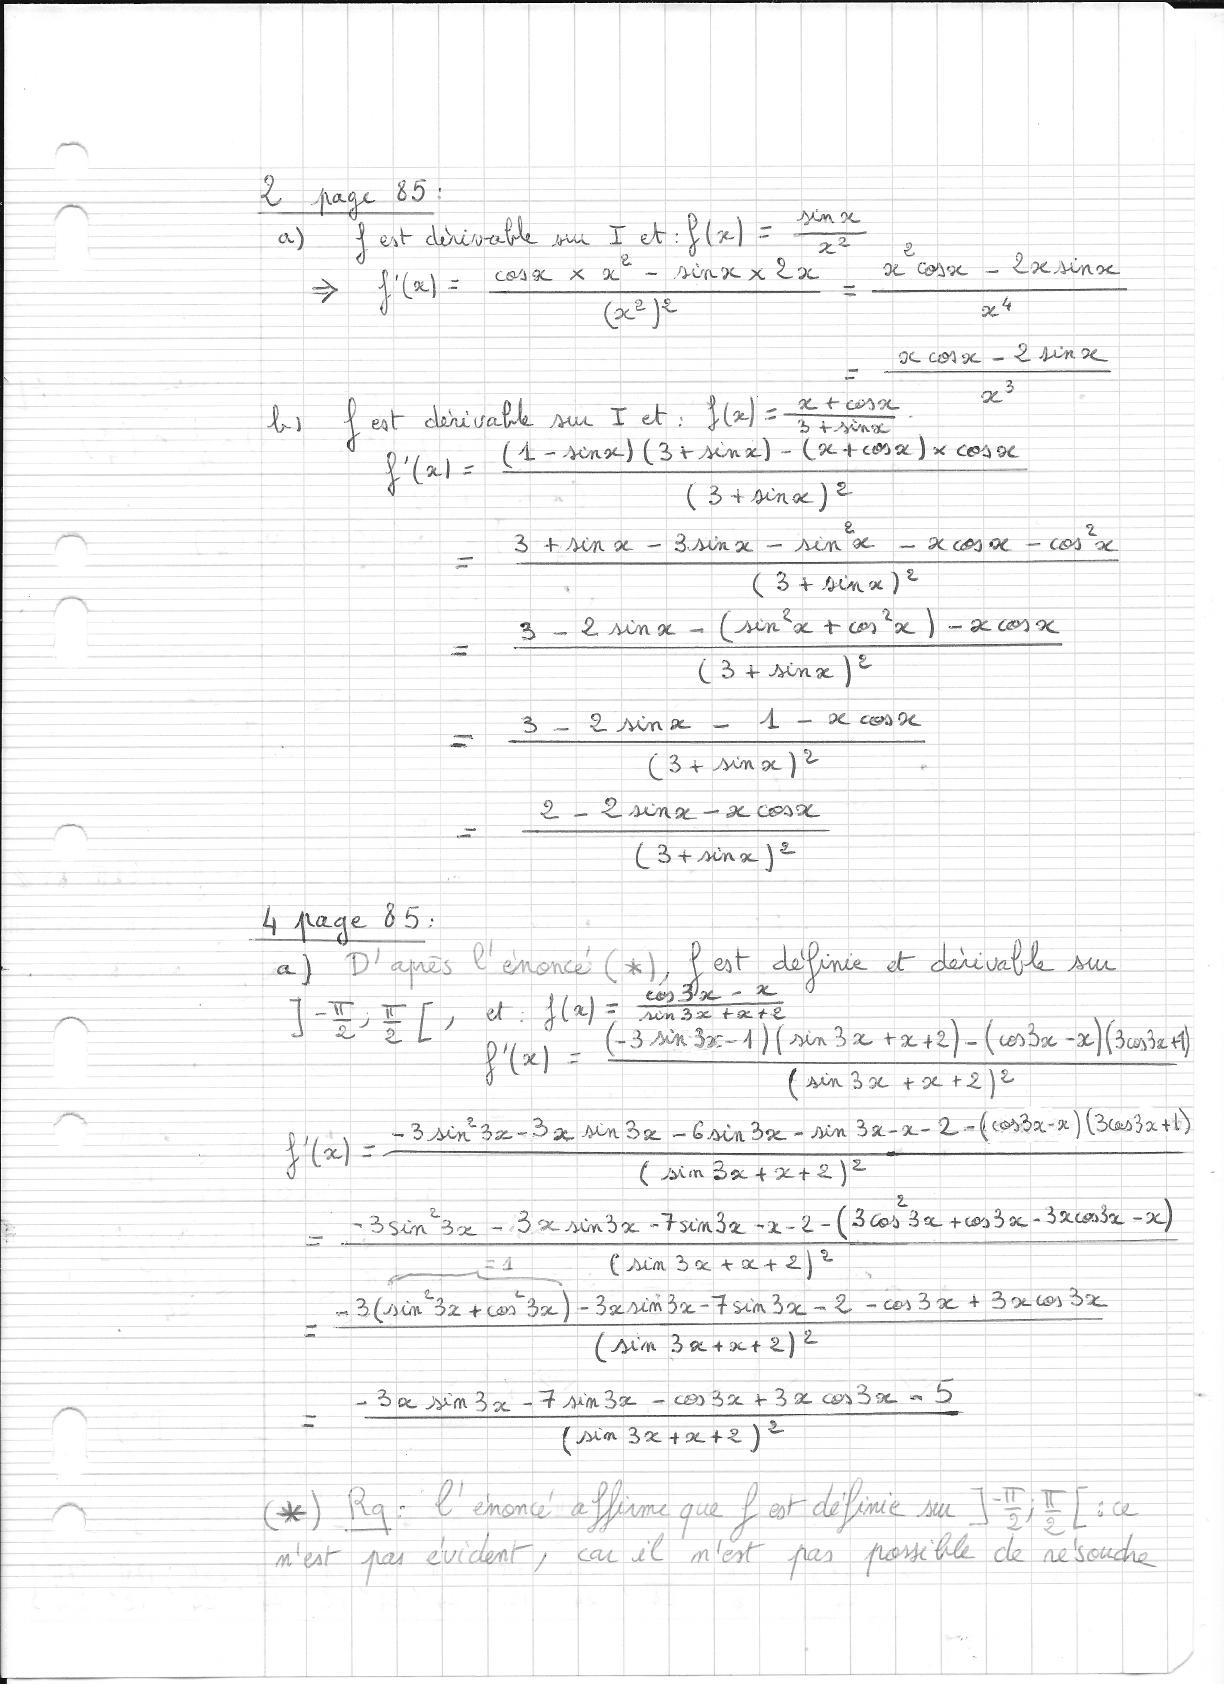 2 page 85 :
a) f est dérivable sur I et : f(x) = sinx / x²
⇒ f'(x) = (cosx × x² - sinx × 2x) / (x²)² = (x² cosx - 2x sinx) / x⁴
= (x cosx - 2 sinx) / x³
b) f est dérivable sur I et : f(x) = (x + cosx) / (3 + sinx) .
f'(x) = ((1 - sinx)(3 + sinx) - (x + cosx) × cosx) / (3 + sinx)²
= (3 + sinx - 3sinx - sin²x - x cosx - cos²x) / (3 + sinx)²
= (3 - 2 sinx - (sin²x + cos²x) - x cosx) / (3 + sinx)²
= (3 - 2 sinx - 1 - x cosx) / (3 + sinx)²
= (2 - 2 sinx - x cosx) / (3 + sinx)²
4 page 85 :
a) D'après l'énoncé (*), f est définie et dérivable sur
]-π/2 ; π/2 [ , et : f(x) = (cos3x - x) / (sin3x + x + 2)
f'(x) = ((-3 sin 3x - 1)(sin3x + x + 2) - (cos3x - x)(3cos3x + 1)) / (sin3x + x + 2)²
f'(x) = (-3 sin²3x - 3x sin3x - 6 sin3x - sin3x - x - 2 - (cos3x - x)(3cos3x + 1)) / (sin3x + x + 2)²
= (-3 sin²3x - 3x sin3x - 7 sin3x - x - 2 - (3cos²3x + cos3x - 3xcos3x - x)) / (sin3x + x + 2)²
= 1
= (-3(sin²3x + cos²3x) - 3x sin3x - 7 sin3x - 2 - cos3x + 3x cos3x) / (sin3x + x + 2)²
= (-3x sin3x - 7 sin3x - cos3x + 3x cos3x - 5) / (sin3x + x + 2)²
(*) Rq : l'énoncé affirme que f est définie sur ]-π/2 ; π/2 [ : ce
n'est pas évident, car il n'est pas possible de résoudre